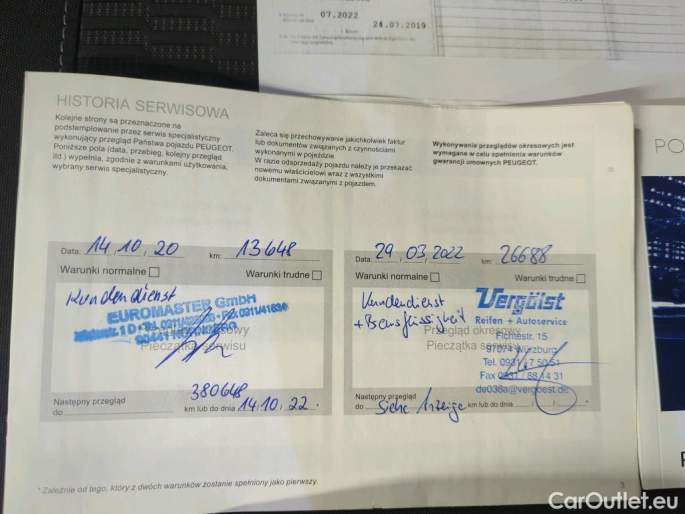 07.2022
24.07.2019
HISTORIA SERWISOWA
Kolejne strony są przeznaczone na
podstemplowanie przez serwis specjalistyczny
wykonujący przegląd Państwa pojazdu PEUGEOT.
Poniższe pola (data, przebieg, kolejny przegląd
itd.) wypełnia, zgodnie z warunkami użytkowania,
wybrany serwis specjalistyczny.
Zaleca się przechowywanie jakichkolwiek faktur
lub dokumentów związanych z czynnościami
wykonanymi w pojeździe.
W razie odsprzedaży pojazdu należy je przekazać
nowemu właścicielowi wraz z wszystkimi
dokumentami związanymi z pojazdem.
Wykonywanie przeglądów okresowych jest
wymagane w celu spełnienia warunków
gwarancji umownych PEUGEOT.
PO
Data: 14,10,20 km: 13648
Warunki normalne Warunki trudne
Kundendienst
EUROMASTER GmbH
Pieczątka serwisu
380648
Następny przegląd
do km lub do dnia 14.10.22.
Data: 29,03,2022 km: 26688
Warunki normalne Warunki trudne
Kundendienst
+ Bremsflüssigkeit
Vergölst
Reifen + Autoservice
Przegląd okresowy
Fichtestr. 15
Pieczątka serwisu
97074 Würzburg
Tel. 0931
Fax 0931 / 88 14 31
de036a@vergoelst.de
Następny przegląd
do Siehe Anzeige km lub do dnia
* Zależnie od tego, który z dwóch warunków zostanie spełniony jako pierwszy.
3
CarOutlet.eu